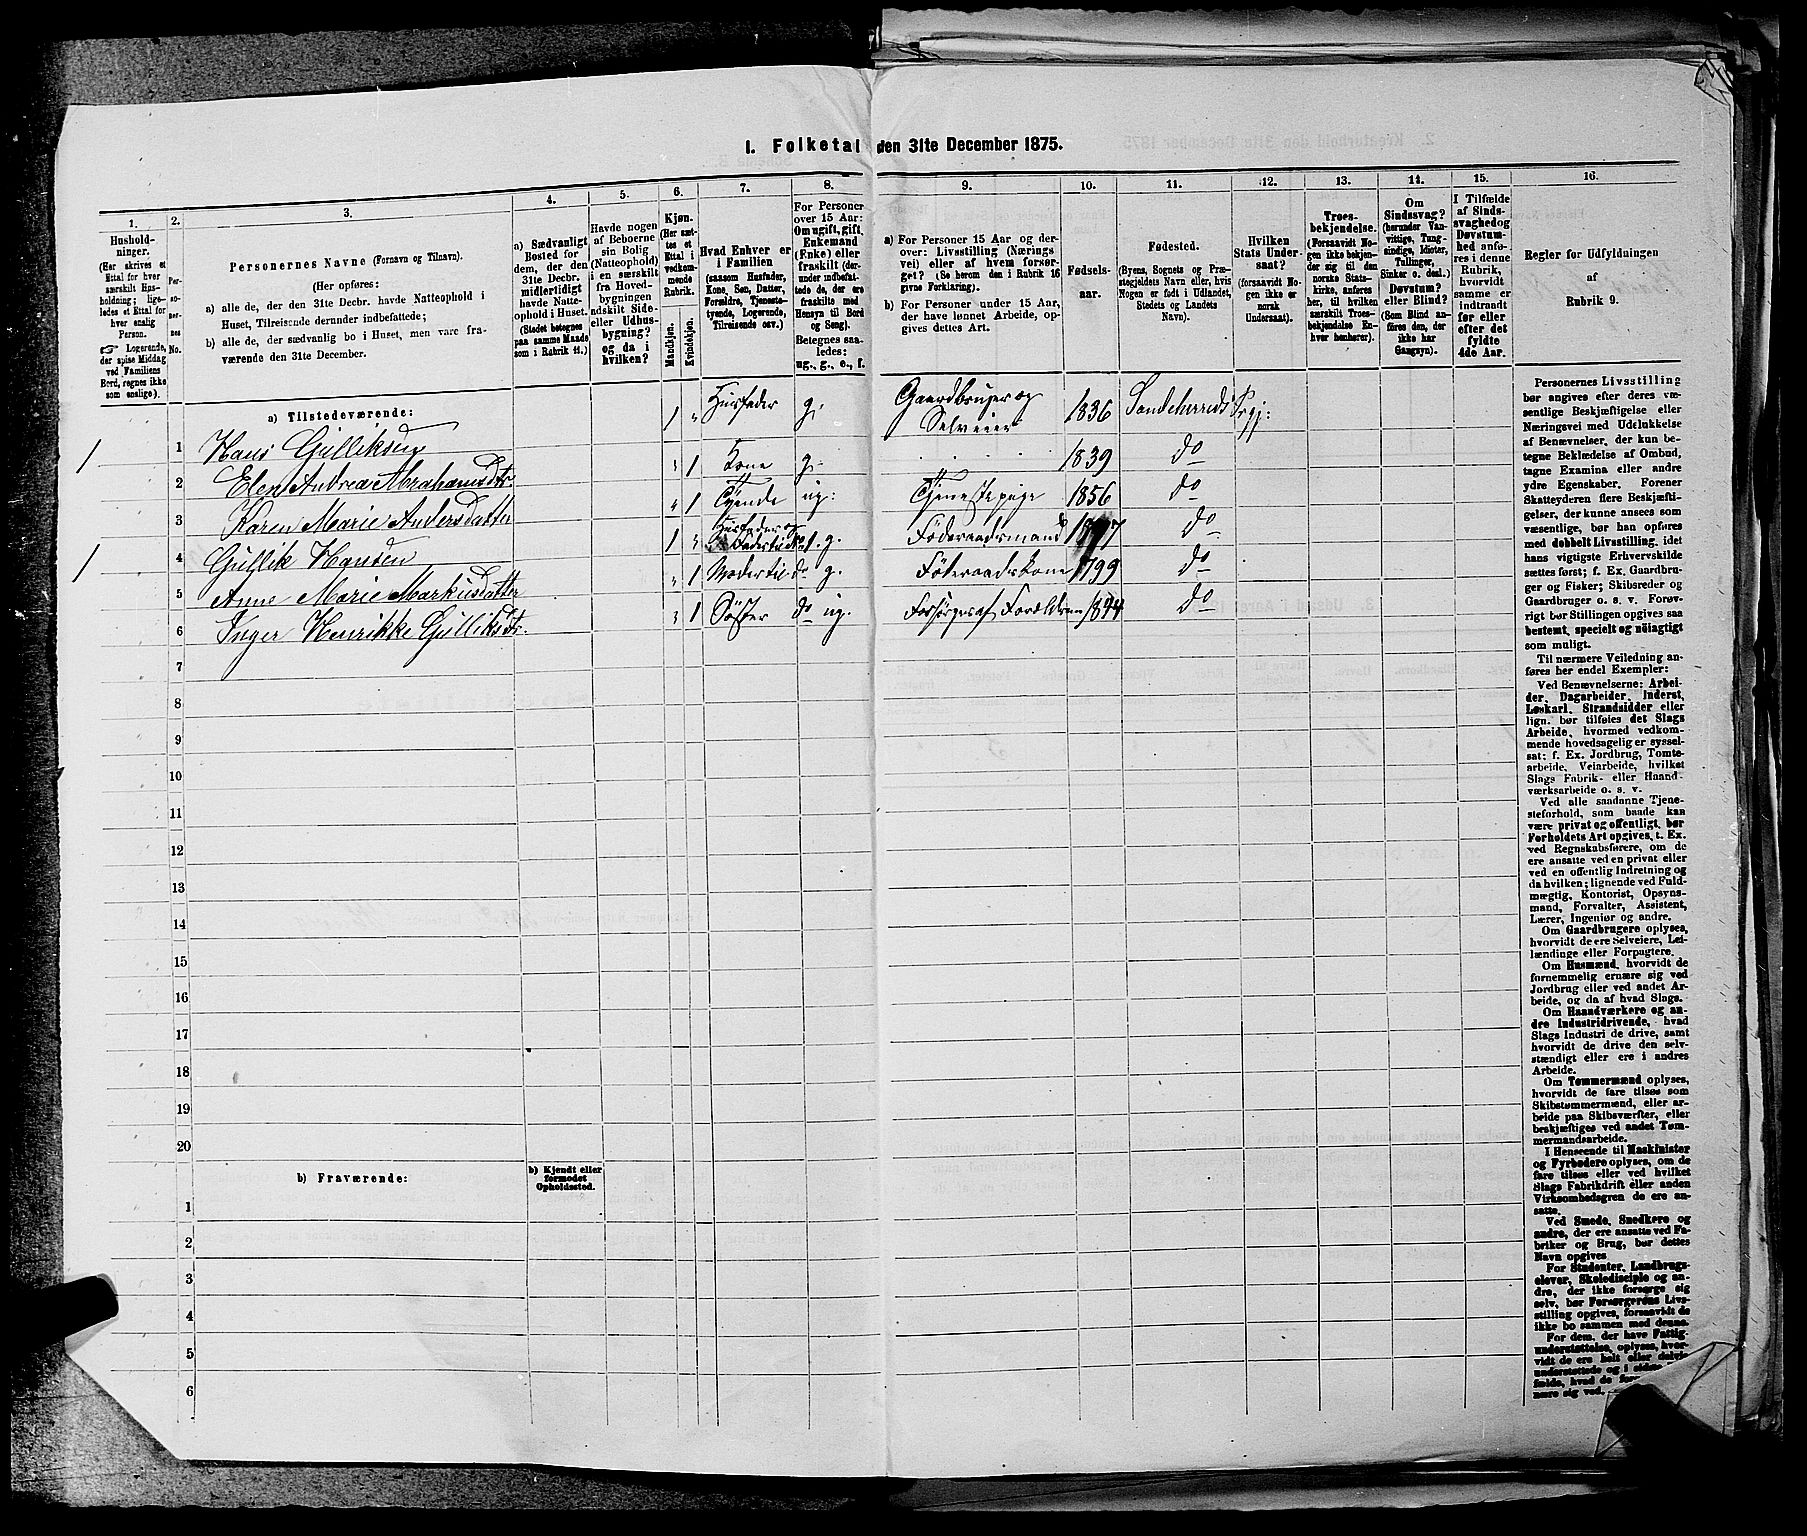 1. Folketal den 31te December 1875.
1.
Hushold-
ninger.
(Her skrives et
Ettal for hver
særskilt Hus-
holdning; lige-
ledes et Ettal for
hver enslig
Person.
Logerende,
der spise Middag
ved Familiens
Bord, regnes ikke
som enslige).
2.
Per-
so-
ner-
nes
No.
3.
Personernes Navne (Fornavn og Tilnavn).
(Her opføres:
a) alle de, der den 31te Decbr. havde Natteophold i
Huset, Tilreisende derunder indbefattede;
b) alle de, der sædvanlig bo i Huset, men vare fra-
værende den 31te December.
4.
a) Sædvanligt
Bosted for
dem, der den
31te Decbr.
midlertidigt
havde Natte-
ophold i Huset.
(Stedet betegnes
paa samme Maade
som i Rubrik 11.)
5.
Havde nogen
af Beboerne
sin Bolig
(Natteophold)
i en særskilt
fra Hoved-
bygningen
adskilt Side-
eller Udhus-
bygning?
og da i
hvilken?
6.
Kjøn.
(Her sæt-
tes et
Ettal i
vedkom-
mende
Rubrik.
Mandkjøn.
Kvindekjøn.
7.
Hvad Enhver er
i Familien
(saasom Husfader,
Kone, Søn, Datter,
Forældre, Tjeneste-
tyende, Logerende,
Tilreisende osv.)
8.
For Personer
over 15 Aar:
Om ugift, gift,
Enkemand
(Enke) eller
fraskilt (der-
under indbefat-
tede de, der ere
fraskilte med
Hensyn til Bord
og Seng).
Betegnes saa-
ledes:
ug., g., e., f.
9.
a) For Personer 15 Aar og der-
over: Livsstilling (Nærings
vei) eller af hvem forsør-
get? (Se herom den i Rubrik 16
givne Forklaring).
b) For Personer under 15 Aar,
der have lønnet Arbeide, op-
gives dettes Art.
10.
Fødsels-
aar.
11.
Fødested.
(Byens, Sognets og Præ-
stegjeldets Navn eller, hvis
Nogen er født i Udlandet,
Stedets og Landets
Navn).
12.
Hvilken
Stats Under-
saat?
(forsaavidt No-
gen ikke er
norsk
Undersaat).
13.
Troes-
bekjendelse.
(Forsaavidt No-
gen ikke bekjen-
der sig til den
norske Stats-
kirke, anføres
her, til hvilken
særskilt Troes-
bekjendelse En-
hver henhører).
14.
Om
Sindssvag?
(herunder Van-
vittige, Tung-
sindige, Idioter,
Tullinger,
Sinker o. desl.)
Døvstum?
eller Blind?
(Som Blind an-
føres den, der
ikke har
Gangsyn).
15.
I Tilfælde
af Sinds-
svaghed og
Døvstum-
hed anfø-
res i denne
Rubrik,
hvorvidt
samme er
indtraadt
før eller
efter det
fyldte
4de Aar.
16.
Regler for Udfyldningen
af
Rubrik 9.
a) Tilstedeværende:
1 1 Hans Gulliksen 1 „ Husfader g. Gaardbruger og Selveier 1836 Sandeherreds Prgj:
2 Elen Andrea Abrahamsdtr. „ 1 Kone g. 1839 do
3 Karen Marie Andersdatter „ 1 Tyende ug: Tjenestepige 1856 do
1 4 Gullik Hansen 1 „ Husfader og Fader til No 1. g. Föderaadsmand do
5 Anne Marie Markusdatter „ 1 Moder til do g. Föderaadskone 1799 do
6 Inger Henrikke Gulliksdtr. „ 1 Söster do ug. Forsörges af Forældrene 1844 do
7
8
9
10
11
12
13
14
15
16
17
18
19
20
b) Fraværende:
b) Kjendt eller
formodet
Opholdssted.
1
2
3
4
5
6
Personernes Livsstilling
bør angives efter deres væ-
sentlige Beskjæftigelse eller
Næringsvei med Udelukkelse
af Benævnelser, der kun be-
tegne Beklædelse af Ombud,
tagne Examina eller andre
ydre Egenskaber. Forener
Skatteyderen flere Beskjæfti-
gelser, der kunne ansees som
væsentlige, bør han opføres
med dobbelt Livsstilling, idet
hans vigtigste Erhvervskilde
sættes først; f. Ex. Gaardbru-
ger og Fisker; Skibsreder og
Gaardbruger o. s. v. Forøv-
rigt bør Stillingen opgives saa
bestemt, specielt og nöiagtigt
som muligt.
Til nærmere Veiledning an-
føres her endel Exempler:
Ved Benævnelserne: Arbei-
der, Dagarbeider, Inderst,
Løskarl, Strandsidder eller
lign. bør tilføies det Slags
Arbeide, hvormed vedkom-
mende hovedsagelig er syssel-
sat: f. Ex. Jordbrug, Tomte-
arbeide, Veiarbeide, hvilket
Slags Fabrik- eller Haand-
værksarbeide o. s. v.
Ved alle saadanne Tjene-
steforhold, som baade kan
være privat og offentligt, bør
Forholdets Art opgives, t. Ex.
ved Regnskabsførere, om de
ere ansatte ved en privat eller
ved en offentlig Indretning og
da hvilken; lignende ved Fuld-
mægtig, Kontorist, Opsyns-
mand, Forvalter, Assistent,
Lærer, Ingeniør og andre.
Om Gaardbrugere oplyses,
hvorvidt de ere Selveiere, Lei-
lændinge eller Forpagtere.
Om Husmænd, hvorvidt de
fornemmelig ernære sig ved
Jordbrug eller ved andet Ar-
beide, og da af hvad Slags.
Om Haandværkere og an-
dre Industridrivende, hvad
Slags Industri de drive, samt
hvorvidt de drive den selv-
stændigt eller ere i andres
Arbeide.
Om Tømmermænd oplyses,
hvorvidt de fare tilsøs som
Skibstømmermænd, eller ar-
beide paa Skibsværfter, eller
beskjæftiges ved andet Tøm-
mermandsarbeide.
I Henseende til Maskinister
og Fyrbødere oplyses, om de
fare tilsøs eller ved hvilket
Slags Fabrikdrift eller anden
Virksomhedsgren de ere an-
satte.
Ved Smede, Snedkere og
andre, der ere ansatte ved Fa-
briker og Brug, bør dettes
Navn opgives
For Studenter, Landbrugs-
elever, Skoledisciple og an-
dre, der ikke forsørge sig
selv, bør Forsørgerens Livs-
stilling opgives, forsaavidt de
ikke bo sammen med denne.
For dem, der have Fattig-
understøttelse, oplyses, hvor-
vidt de ere helt eller